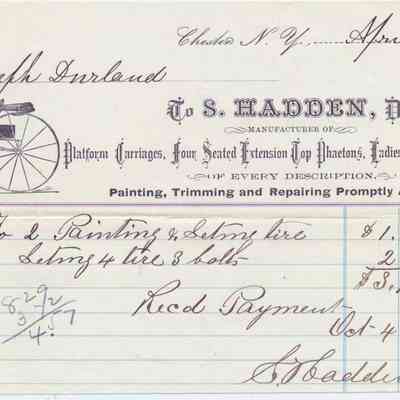 Chester N. Y., Apri
eph Durland
To S. HADDEN, D
MANUFACTURER OF
Platform Carriages, Four Seated Extension Top Phaetons, Ladies
OF EVERY DESCRIPTION.
Painting, Trimming and Repairing Promptly A
To 2 Painting & Setting tire $1.
Setting 4 tire 3 bolts 2
$3.
Recd Payment
Oct 4
S. Hadden